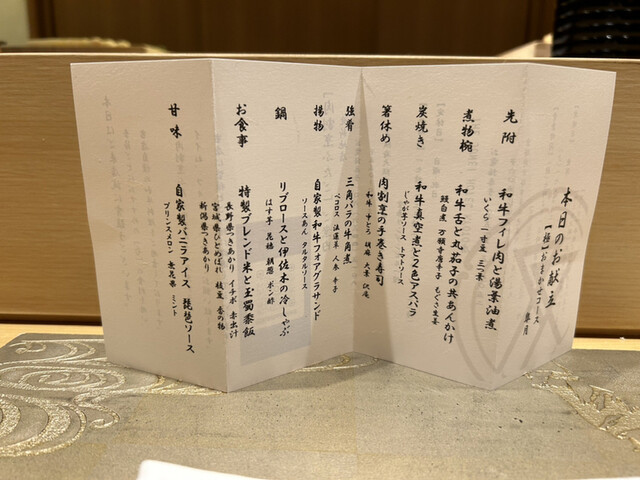 本日のお献立
【極】おまかせコース
皐月
先附
和牛フィレ肉と湯葉油煮
いくら 一寸豆 三つ葉
煮物椀
和牛舌と丸茄子の共あんかけ
万願寺唐辛子 もぐさ生姜
炭焼き
和牛真空煮と2色アスパラ
じゃが芋ソース トマトソース
箸休め
肉割烹の手巻き寿司
和牛 中とろ 胡麻 大葉 沢庵
強肴
三角バラの牛角煮
ペコロス 法蓮草 人参 辛子
揚物
自家製和牛フォアグラサンド
ソースあん タルタルソース
鍋
リブロースと伊佐木の冷しゃぶ
はす芋 花穂 ポン酢
お食事
特製ブレンド米と玉蜀黍飯
長野県つきあかり イチボ 赤出汁
宮城県ひとめぼれ 香の物
新潟県つきあかり
甘味
自家製バニラアイス 琵琶ソース
プリンスメロン ミント